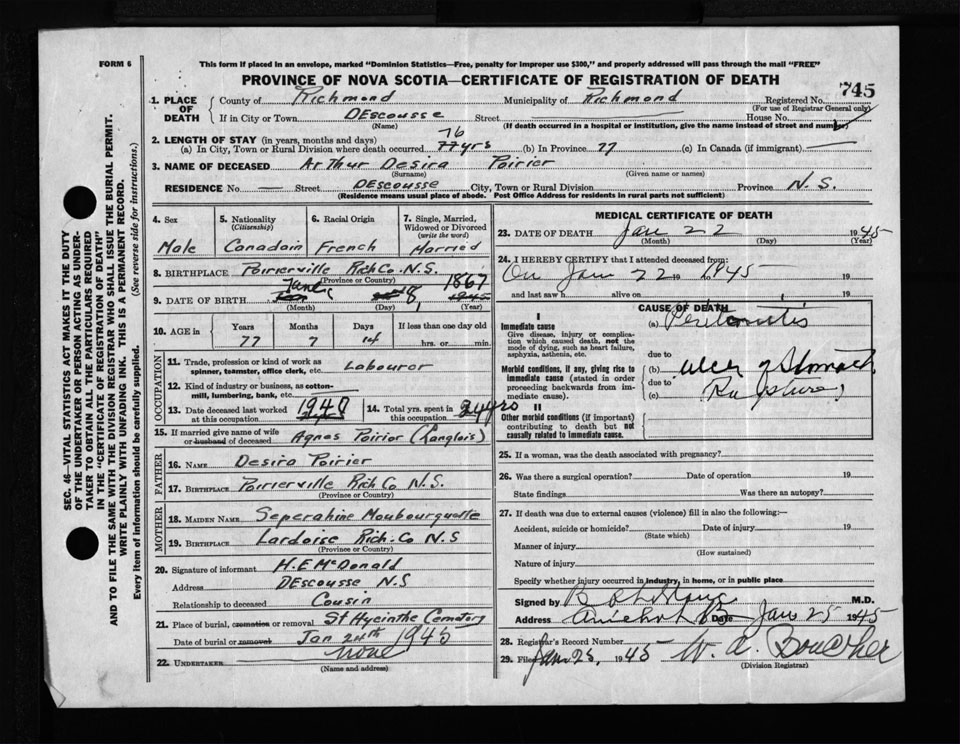 FORM 6
This form if placed in an envelope, marked "Dominion Statistics—Free, penalty for improper use $300," and properly addressed will pass through the mail "FREE"
PROVINCE OF NOVA SCOTIA—CERTIFICATE OF REGISTRATION OF DEATH
745
1. PLACE OF DEATH
County of Richmond Municipality of Richmond Registered No.
(For use of Registrar General only)
If in City or Town DEscousse Street House No.
(Name) (If death occurred in a hospital or institution, give the name instead of street and number)
2. LENGTH OF STAY (in years, months and days)
(a) In City, Town or Rural Division where death occurred 76 77 yrs (b) In Province 77 (c) In Canada (if immigrant)
3. NAME OF DECEASED Arthur Desira Poirier
(Surname) (Given name or names)
RESIDENCE No. — Street DEscousse City, Town or Rural Division Province N.S.
(Residence means usual place of abode. Post Office Address for residents in rural parts not sufficient)
4. Sex
Male
5. Nationality
(Citizenship)
Canadain
6. Racial Origin
French
7. Single, Married, Widowed or Divorced
(write the word)
Married
8. BIRTHPLACE Poirierville Rich Co. N.S.
(Province or Country)
9. DATE OF BIRTH June 8, 1867 1945
(Month) (Day) (Year)
10. AGE in
Years Months Days If less than one day old
77 7 14 hrs. or min.
OCCUPATION
11. Trade, profession or kind of work as spinner, teamster, office clerk, etc. Labourer
12. Kind of industry or business, as cotton-mill, lumbering, bank, etc.
13. Date deceased last worked at this occupation 1940
14. Total yrs. spent in this occupation 24 yrs
15. If married give name of wife or husband of deceased Agnes Poirior (Langlois)
FATHER
16. NAME Desira Poirier
17. BIRTHPLACE Poirierville Rich Co N.S.
(Province or Country)
MOTHER
18. MAIDEN NAME Seperahine Moubourquette
19. BIRTHPLACE Lardoise Rich. Co N.S
(Province or Country)
20. Signature of informant H.E McDonald
Address DEscousse N.S
Relationship to deceased Cousin
21. Place of burial, cremation or removal St Hycinthe Cemetory
Date of burial or removal Jan 24th 1945
22. UNDERTAKER none
(Name and address)
MEDICAL CERTIFICATE OF DEATH
23. DATE OF DEATH Jan 22 1945
(Month) (Day) (Year)
24. I HEREBY CERTIFY that I attended deceased from:
On Jan 22 19 1945 19
and last saw h alive on 19
CAUSE OF DEATH
I
Immediate cause
Give disease, injury or complication which caused death, not the mode of dying, such as heart failure, asphyxia, asthenia, etc.
(a) Peritonitis
due to
Morbid conditions, if any, giving rise to immediate cause (stated in order proceeding backwards from immediate cause).
(b) ulcer of Stomach
due to
(c) Rupture)
II
Other morbid conditions (if important) contributing to death but not causally related to immediate cause.
25. If a woman, was the death associated with pregnancy?
26. Was there a surgical operation? Date of operation 19
State findings Was there an autopsy?
27. If death was due to external causes (violence) fill in also the following:—
Accident, suicide or homicide? Date of injury 19
(State which)
Manner of injury
(How sustained)
Nature of injury
Specify whether injury occurred in industry, in home, or in public place
Signed by M.D.
Address Arichat CB Date Jan 25 1945
28. Registrar's Record Number
29. Filed Jan 25, 1945 W. A. Boucher
(Division Registrar)
SEC. 46—VITAL STATISTICS ACT MAKES IT THE DUTY
OF THE UNDERTAKER OR PERSON ACTING AS UNDER-
TAKER TO OBTAIN ALL THE PARTICULARS REQUIRED
IN THE "CERTIFICATE OF REGISTRATION OF DEATH"
AND TO FILE THE SAME WITH THE DIVISION REGISTRAR WHO SHALL ISSUE THE BURIAL PERMIT.
WRITE PLAINLY WITH UNFADING INK. THIS IS A PERMANENT RECORD.
Every item of information should be carefully supplied. (See reverse side for instructions.)